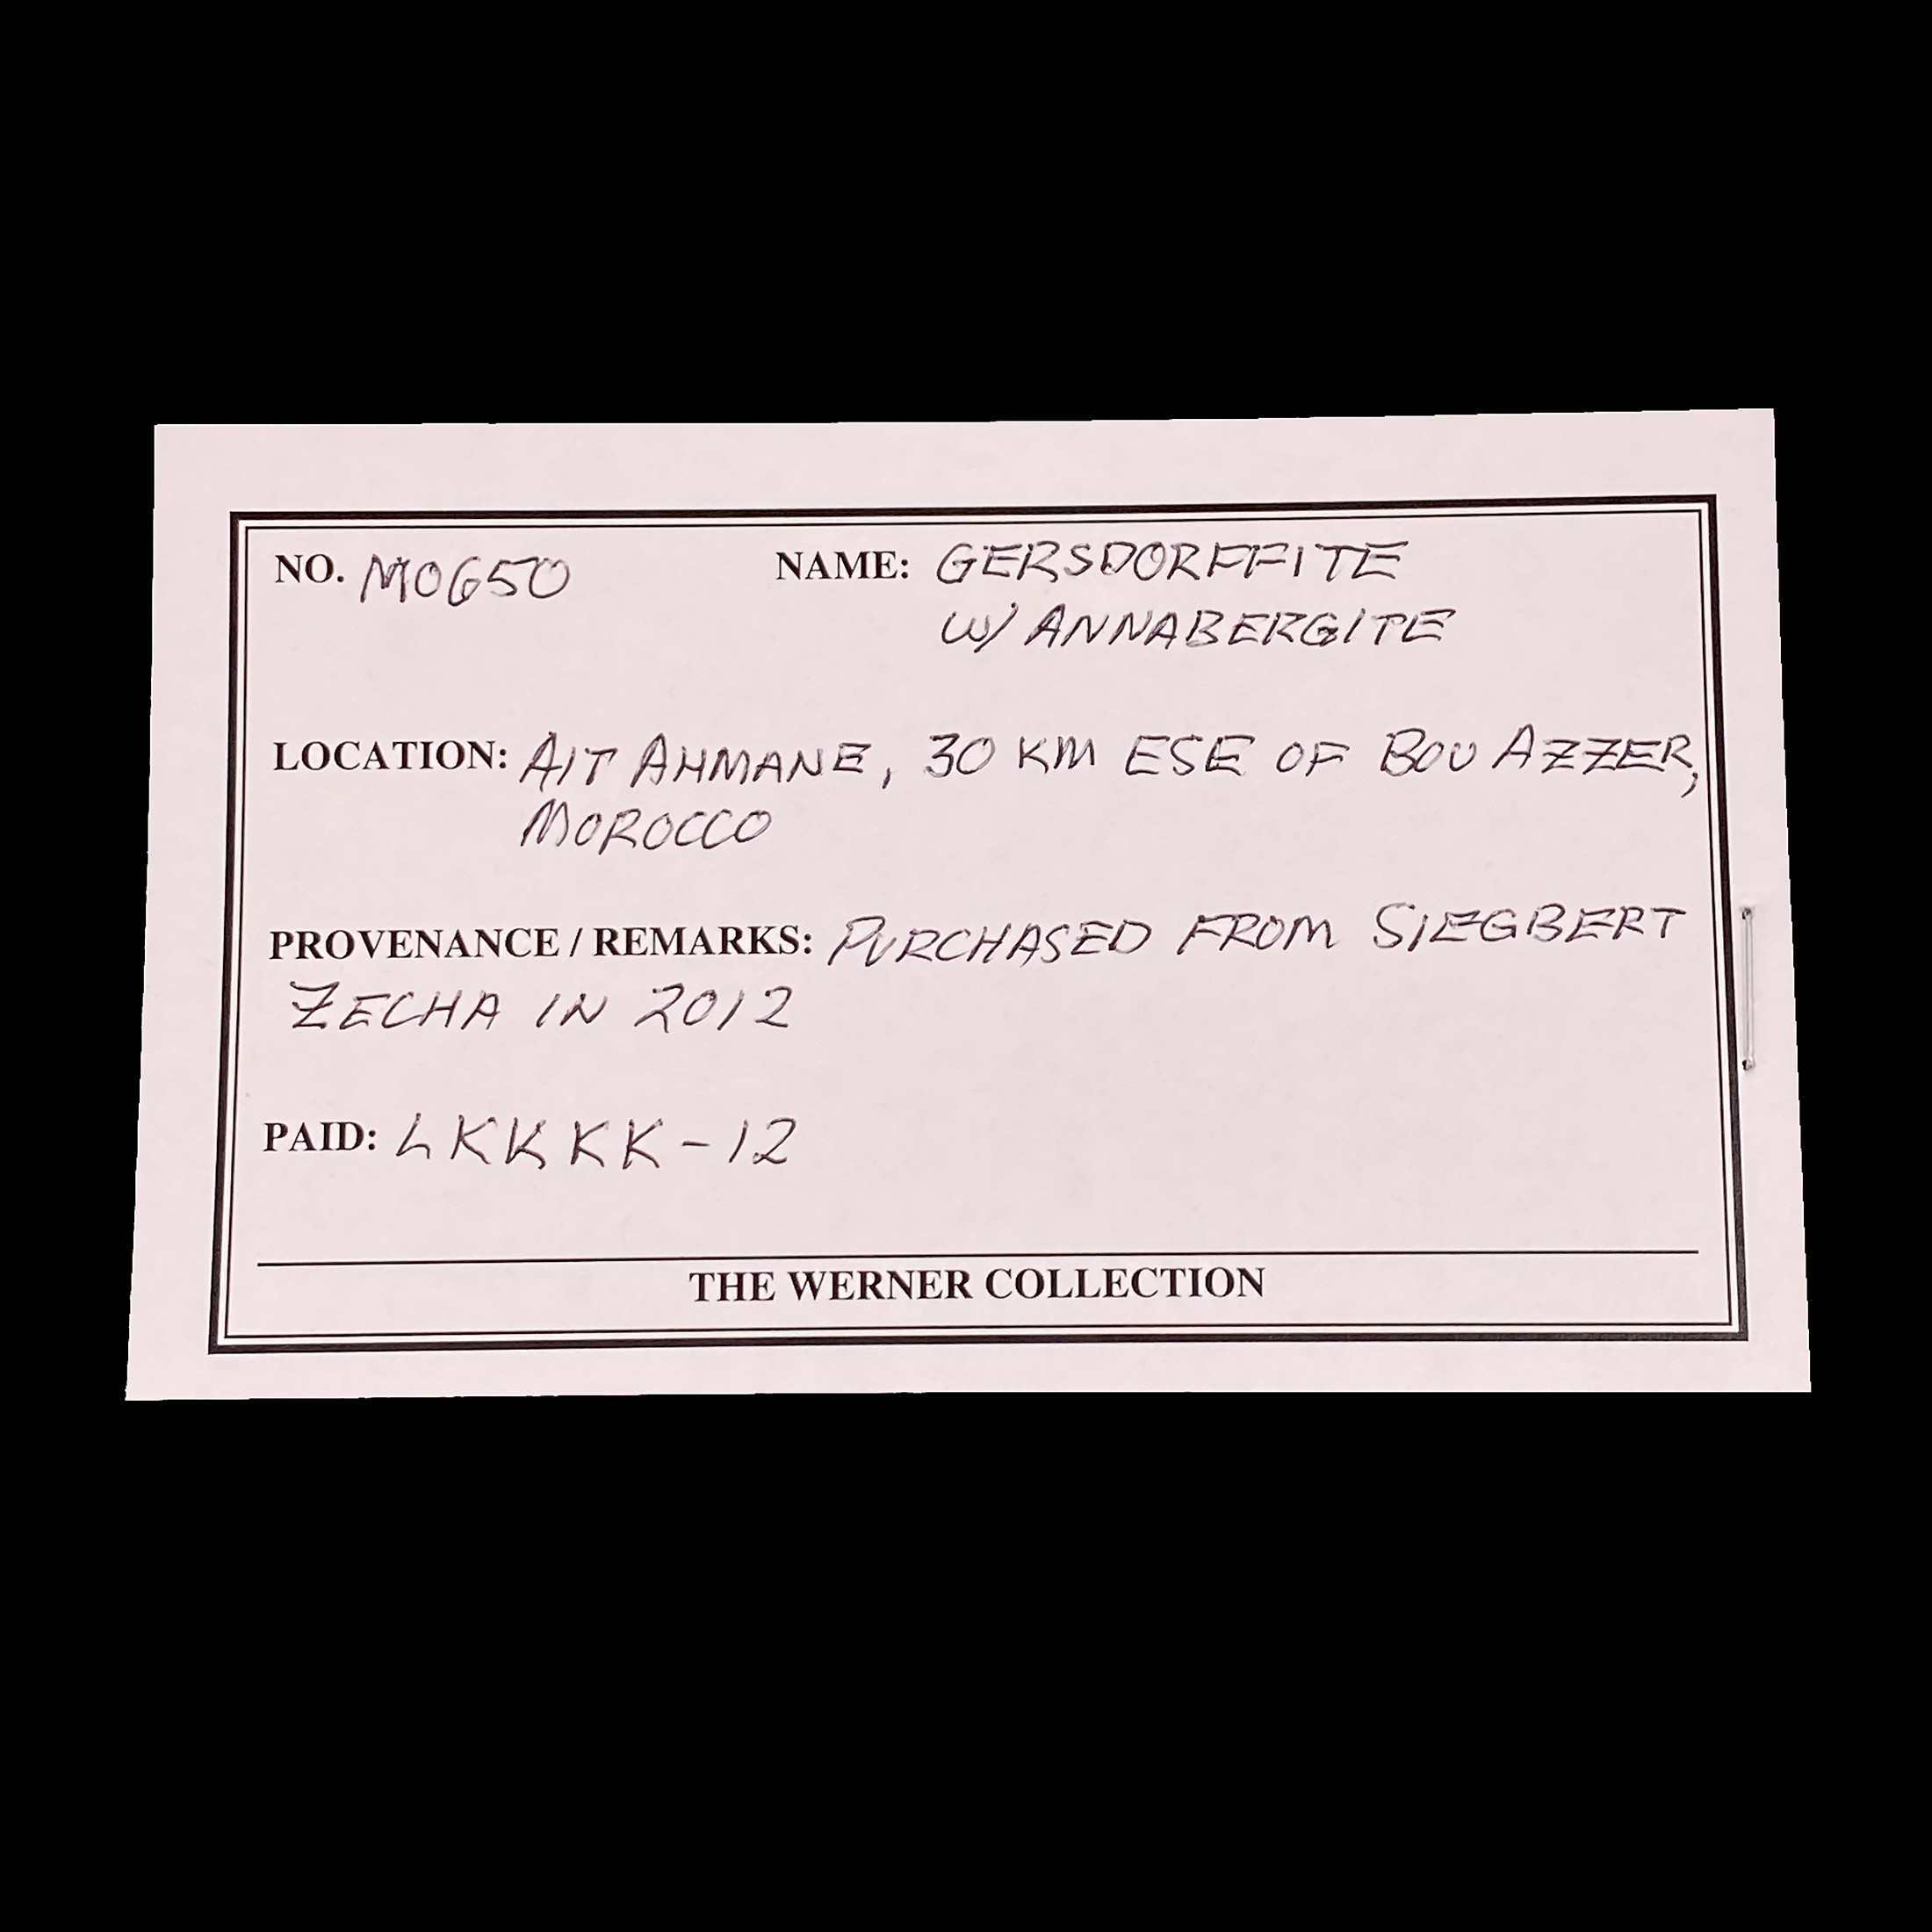 NO. M0650 NAME: GERSDORFFITE
W/ ANNABERGITE
LOCATION: AIT AHMANE, 30 KM ESE OF BOU AZZER,
MOROCCO
PROVENANCE / REMARKS: PURCHASED FROM SIEGBERT
ZECHA IN 2012
PAID: LKKKK-12
THE WERNER COLLECTION